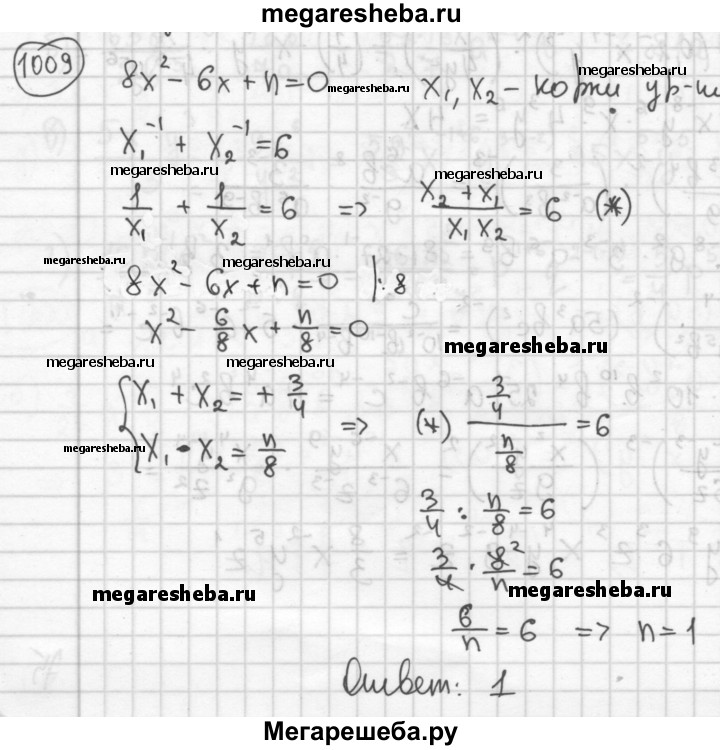 megaresheba.ru
1009
8x² - 6x + n = 0 megaresheba.ru x₁, x₂ - корни megaresheba.ru
x₁⁻¹ + x₂⁻¹ = 6
megaresheba.ru megaresheba.ru
1/x₁ + 1/x₂ = 6 => (x₂ + x₁)/(x₁ x₂) = 6 (*)
megaresheba.ru megaresheba.ru
8x² - 6x + n = 0 |: 8
x² - 6/8 x + n/8 = 0
megaresheba.ru
megaresheba.ru megaresheba.ru
{ x₁ + x₂ = + 3/4
x₁ · x₂ = n/8 => (*) (3/4)/(n/8) = 6
megaresheba.ru
3/4 : n/8 = 6
3/4 · 8²/n = 6
megaresheba.ru megaresheba.ru
6/n = 6 => n = 1
Ответ: 1
Мегарешеба.ру